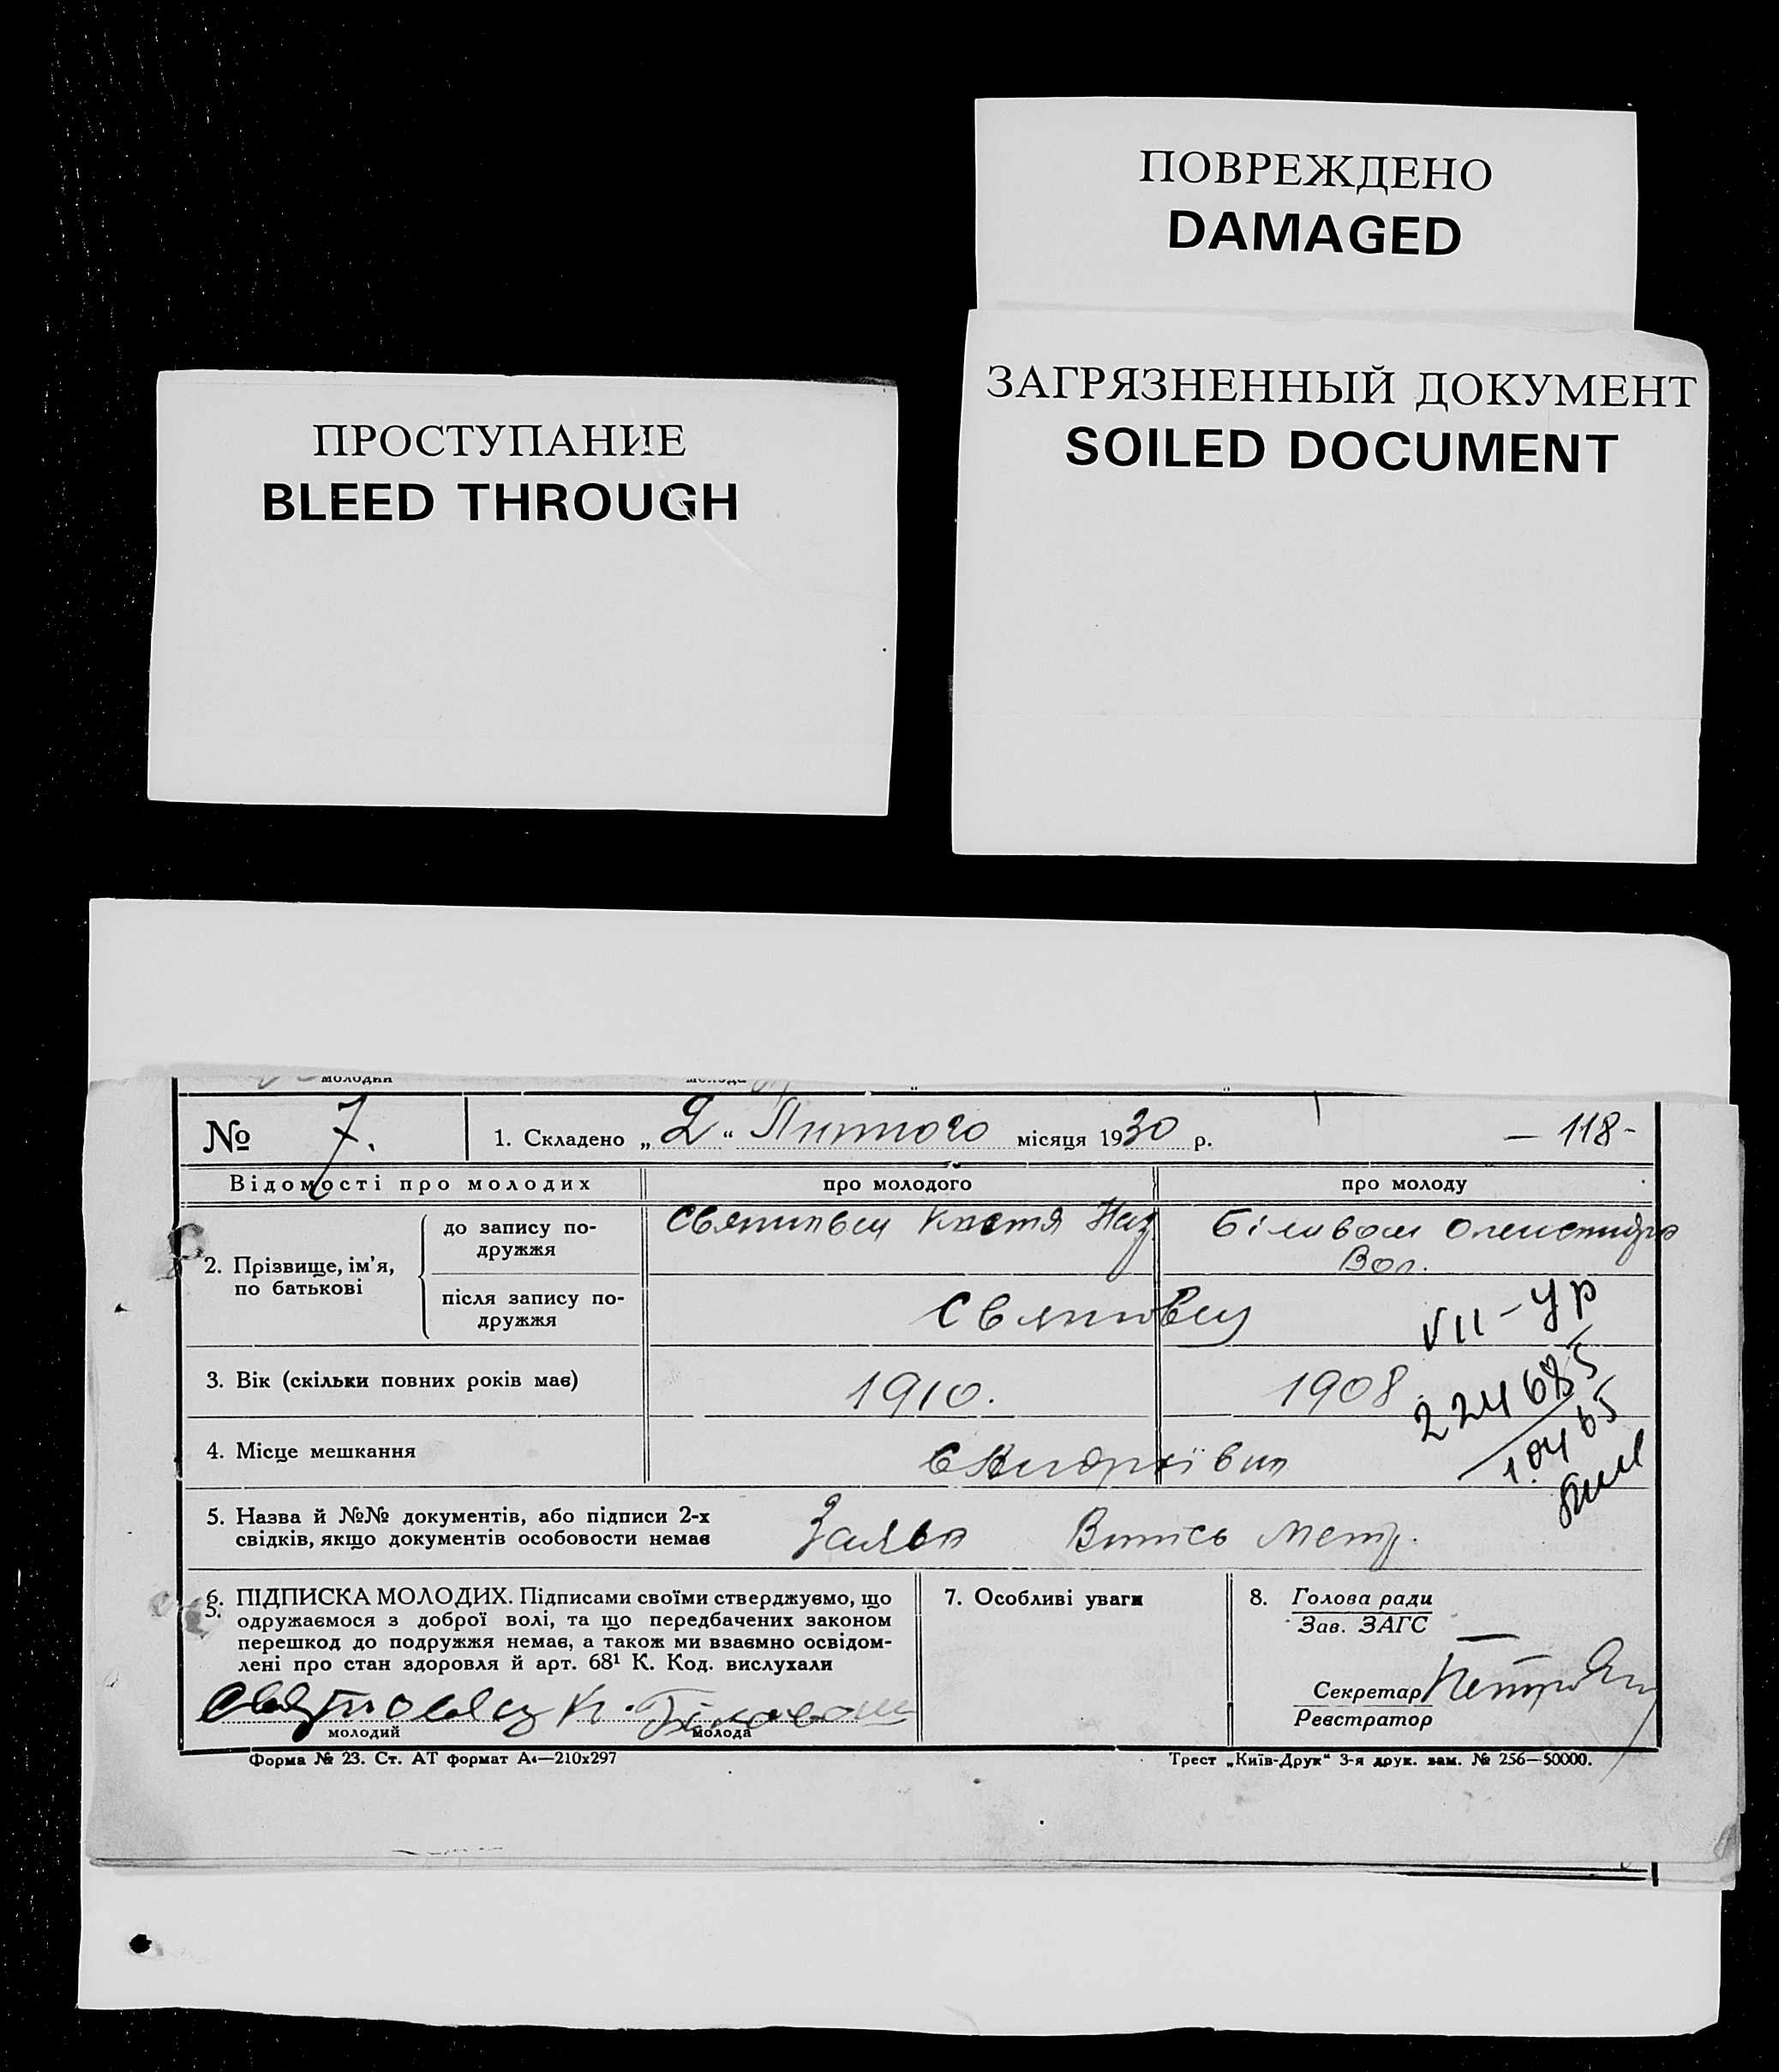 ПОВРЕЖДЕНО
DAMAGED
ЗАГРЯЗНЕННЫЙ ДОКУМЕНТ
SOILED DOCUMENT
ПРОСТУПАНИЕ
BLEED THROUGH
молодий
молода
№ 7.
1. Складено „2“ Лютого місяця 1930 р.
— 118 -
Відомості про молодих
про молодого
про молоду
2. Прізвище, ім'я,
по батькові
до запису по-
дружжя
Костя Наз
Олександра
Вол.
після запису по-
дружжя
VII - Ур
3. Вік (скільки повних років має)
1910.
1908.
4. Місце мешкання
5. Назва й №№ документів, або підписи 2-х
свідків, якщо документів особовости немає
Заява Витсь Метр.
6. ПІДПИСКА МОЛОДИХ. Підписами своїми стверджуємо, що
5.
одружаємося з доброї волі, та що передбачених законом
перешкод до подружжя немає, а також ми взаємно освідом-
лені про стан здоровля й арт. 68¹ К. Код. вислухали
молодий
молода
7. Особливі уваги
8. Голова ради
Зав. ЗАГС
Секретар
Реєстратор
Форма № 23. Ст. АТ формат А₄—210х297
Трест „Київ-Друк“ 3-я друк. зам. № 256—50000.